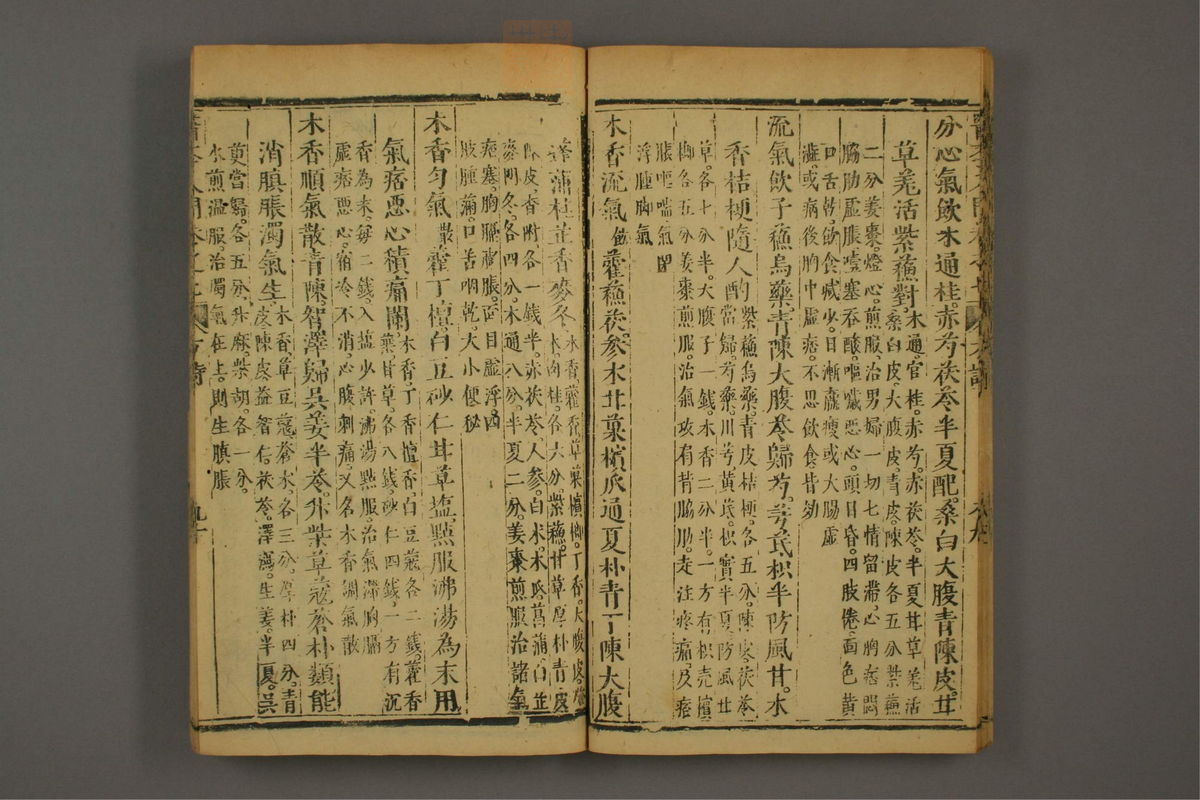 分心氣飲木通桂赤芍茯苓半夏配桑白大腹青陳皮甘
草羌活紫蘇對木通官桂赤芍赤茯苓半夏甘草羌活
桑白皮大腹皮青皮陳皮各五分紫蘇
二分姜棗燈心煎服治男婦一切七情留滯心胸痞悶
脇肋虛脹噎塞吞酸嘔噦惡心頭目昏四肢倦面色黃
口舌乾飲食減少日漸羸瘦或大腸虛
澁或病後胸中虛痞不思飲食皆効
流氣飲子蘇烏藥青陳大腹苓歸芍芎芪枳半防風甘木
香桔梗隨人酌紫蘇烏藥青皮桔梗各五分陳皮茯苓
當歸芍藥川芎黃芪枳實半夏防風甘
草各七分半大腹子一錢木香二分半一方有枳壳檳
榔各五分姜棗煎服治氣攻肩背脇肋走注疼痛及痞
脹嘔喘氣
浮腫脚氣
木香流氣飲藿蘇茯參木甘菓檳瓜通夏朴青丁陳大腹
蓬蒲桂芷香麥冬木香藿香草菓檳榔丁香大腹皮蓬
木肉桂各六分紫蘇甘草厚朴青皮
陳皮香附各一錢半赤茯苓人參白术木瓜菖蒲白芷
麥門冬各四分木通八分半夏二分姜棗煎服治諸氣
痞塞胸膈膨脹面目虛浮四
肢腫滿口苦咽乾大小便秘
木香勻氣散藿丁檀白豆砂仁甘草塩點服沸湯為末用
氣痞惡心積痛闌木香丁香檀香白豆蔻各二錢藿香
葉甘草各八錢砂仁四錢一方有沉
香為末每二錢入塩少許沸湯點服治氣滯胸膈
虛痞惡心宿冷不消心腹刺痛又名木香調氣散
木香順氣散青陳智澤歸吳姜半苓升柴草蔻蒼朴類能
消䐜脹濁氣生木香草豆蔻蒼术各三分厚朴四分青
皮陳皮益智仁茯苓澤瀉生姜半夏吳
萸當歸各五分升麻柴胡各一分
水煎溫服治濁氣在上則生䐜脹